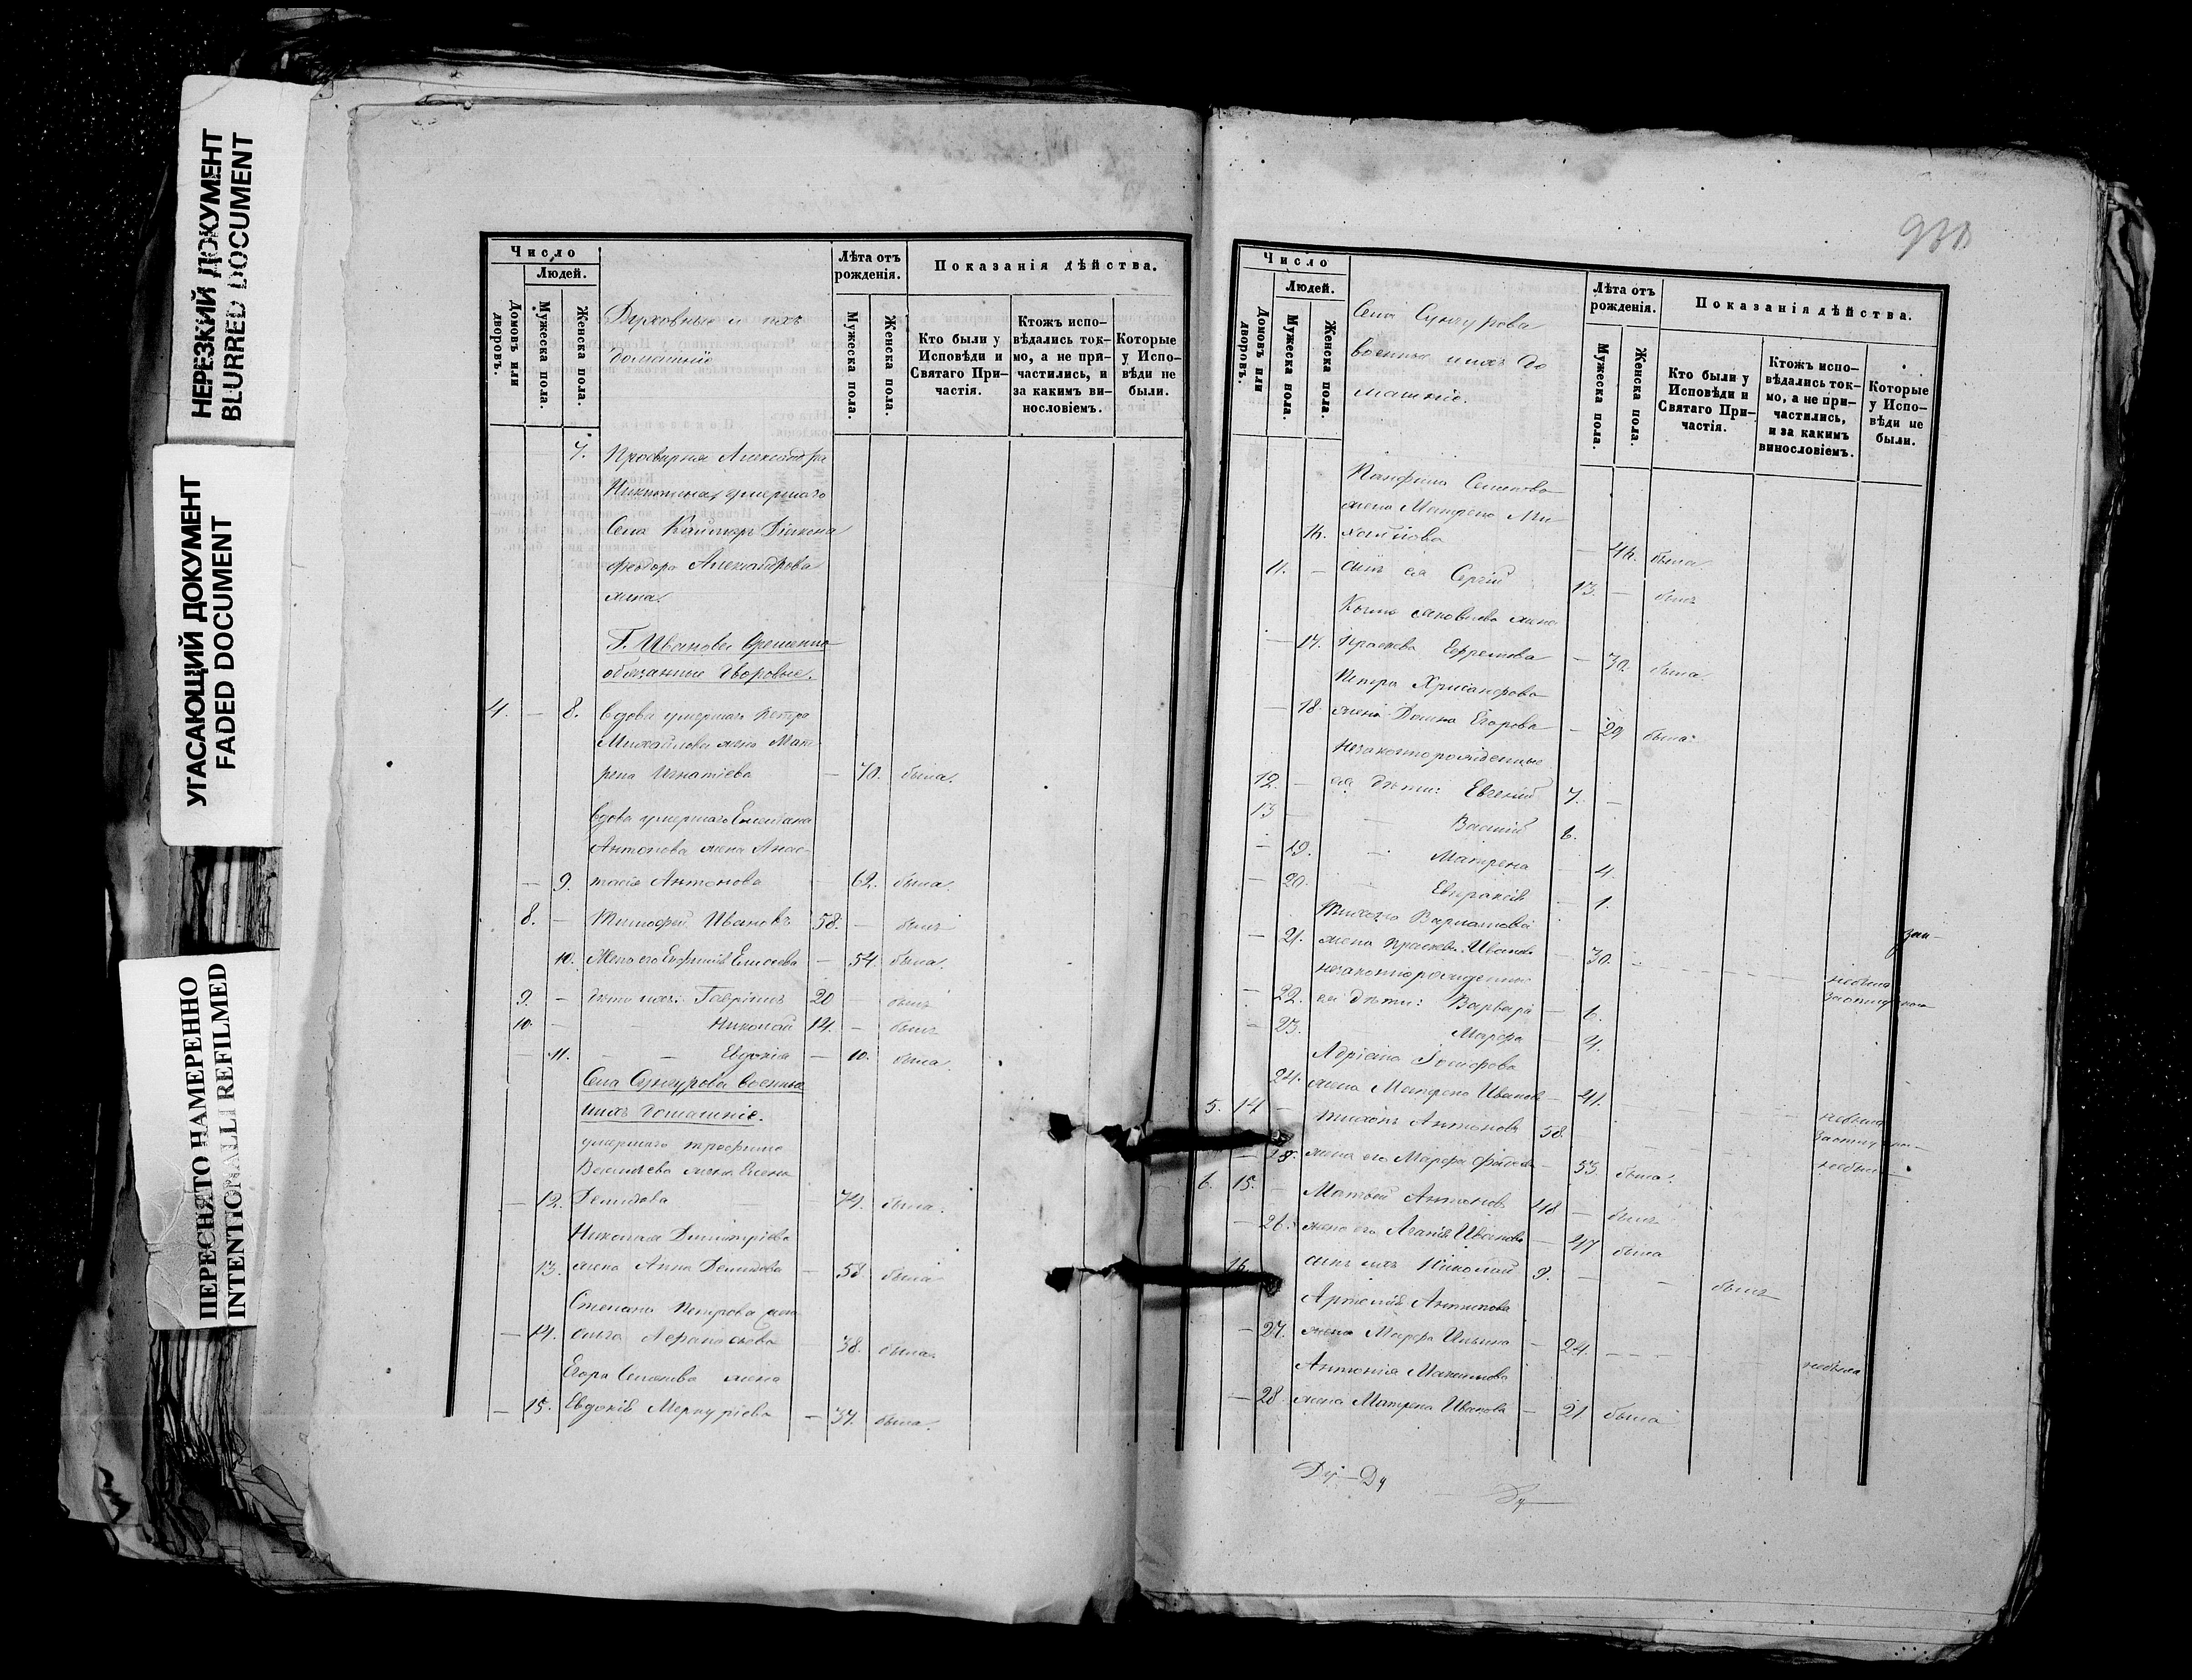 НЕРЕЗКИЙ ДОКУМЕНТ
BLURRED DOCUMENT
УГАСАЮЩИЙ ДОКУМЕНТ
FADED DOCUMENT
ПЕРЕСНЯТО НАМЕРЕННО
INTENTIONALLI REFILMED
Число
Людей.
Домовъ или дворовъ.
Мужеска пола.
Женска пола.
Духовные и ихъ
домашніе
Лѣта отъ рожденія.
Мужеска пола.
Женска пола.
Показанія дѣйства.
Кто были у Исповѣди и Святаго Причастія.
Ктожъ исповѣдались токмо, а не причастились, и за какимъ винословіемъ.
Которые у Исповѣди не были.
7. Просвирня Александра
Никитина умершаго
Села Діакона
Ѳеодора Александрова
жена.
Г. Иванова временно
обязанные дворовые.
4. — 8. Вдова умершаго Петра
Михайлова жена Мат-
рена Игнатіева — 70. была.
вдова умершаго Емельяна
Антонова жена Анас-
— 9. тасія Антонова — 62. была.
8. — Тимофей Ивановъ 58. — былъ
10. Жена его Евфимія Елисеева — 54. была.
9. — дѣти ихъ: Гавріилъ 20 — былъ
10. — — Николай 14. — былъ
— 11. — — Евдокія — 10. была.
Села Сунгурова военные
ихъ домашніе.
умершаго Трофима
Васильева жена Елена
— 12. Демидова — 74. была.
Николая Димитріева
13. жена Анна Демидова — 58 была
Степана Петрова жена
— 14. Ольга Афанасьева 38. была.
Егора Семенова жена
— 15. Евдокія Меркуріева — 37. была.
980
Число
Людей.
Домовъ или дворовъ.
Мужеска пола.
Женска пола.
Села Сунгурова
военные ихъ до
машніе.
Лѣта отъ рожденія.
Мужеска пола.
Женска пола.
Показанія дѣйства.
Кто были у Исповѣди и Святаго Причастія.
Ктожъ исповѣдались токмо, а не причастились, и за какимъ винословіемъ.
Которые у Исповѣди не были.
Панфила Семенова
жена Матрена Ми-
16. хайлова — 46. была.
11. — сынъ ея Сергій 13. — былъ
Яковлева жена
— 17. Прасковья Ефремова — 30. была.
Петра Хрисанфова
— 18. жена Домна Егорова — 29 была.
незаконнорожденные
12. — ея дѣти: Евгеній 7. —
13 — — Василій 6.
— 19. — Матрена — 4.
— 20. Евпраксія — 1.
Тихона Варламова
— 21. жена Прасковья Иванова — 30. — не была
незаконнорожденные
— 22. ея дѣти: Варвара — 6.
— 23. Марфа — 4.
Адріана Іосифова
24. жена Матрена Иванова — 41. не была
5. 14 — Тихонъ Антоновъ 58. — не былъ
— 25. жена его Марфа — 53. была.
6. 15. — Матвей Антоновъ 48 — былъ
— 26. жена его Агафія Иванова — 47 была
16. сынъ ихъ Николай 9. — — былъ
Артемія Антипова
— 27. жена Марфа Ильина — 24. — не была
Антонія Максимова
— 28 жена Матрена Иванова — 21 была